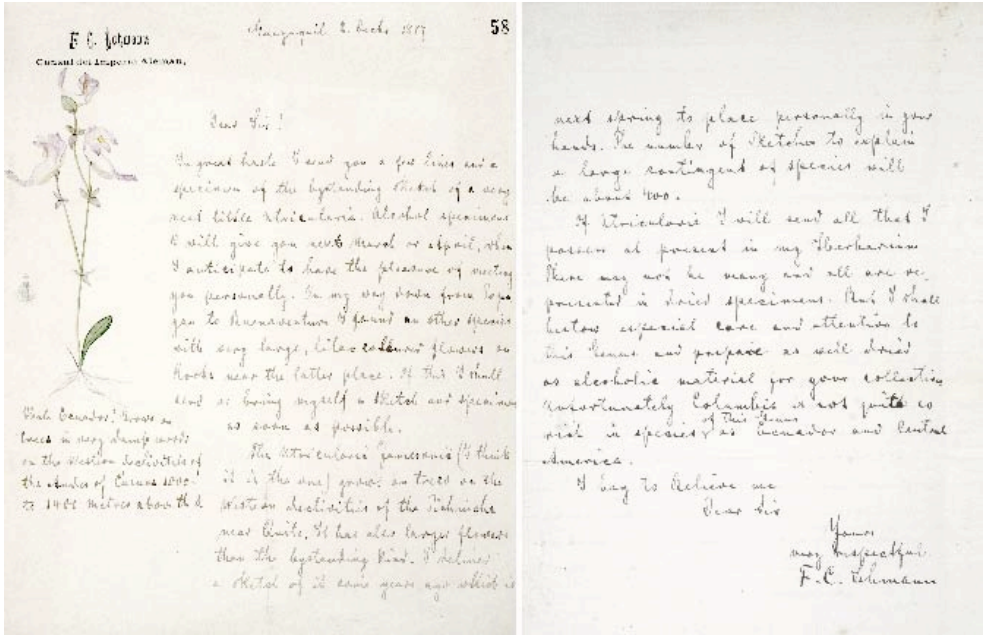 F. C. Lehmann
Consul del Imperio Aleman,
Guayaquil 2. Decbr 18
58
Dear Sir!
In great haste I send you a few lines and a
specimen of the bystanding sketch of a very
neat little Utricularia. Alcohol specimens
I will give you next March or April, when
I anticipate to have the pleasure of meeting
you personally. In my way down from Popa
yan to Buenaventura I found an other species
with very large, lilac coloured flowers on
Rocks near the latter place. Of this I shall
send or bring myself a sketch and specimens
as soon as possible.
The Utricularia Jamesonii (I think
it is the one) grows on trees on the
Western declivities of the Pichincha
near Quito. It has also larger flowers
than the bystanding kind. I
a sketch of it some years ago which is
Ecuador: Grows on
trees in very damp woods
on the Western declivities of
the Andes of Cuenca 1000
to 1400 metres above the
next spring to place personally in your
hands. The number of sketches to explain
a large contingent of species will
be about 400.
Of Utricularia I will send all that I
possess at present in my Herbarium
There may not be many and all are re-
presented in dried specimens. But I shall
bestow especial care and attention to
this Genus and prepare as well dried
as alcoholic material for your collection
Unfortunately Columbia is not quite so
rich in species of this Genus as Ecuador and Central
America.
I beg to believe me
Dear Sir
Yours
very respectful
F. C. Lehmann